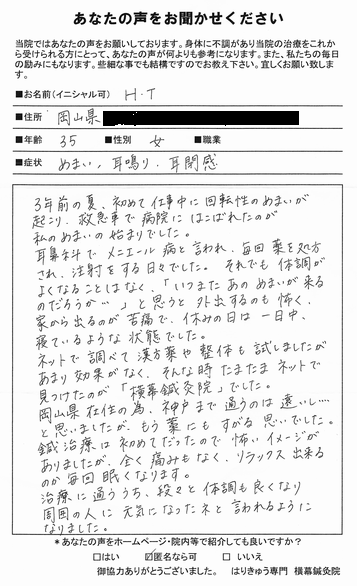 あなたの声をお聞かせください
当院ではあなたの声をお願いしております。身体に不調があり当院の治療をこれか
ら受けられる方にとって、あなたの声が何よりも参考になります。また、私たちの毎日
の励みにもなります。些細な事でも結構ですのでお教え下さい。宜しくお願い致しま
す。
■お名前(イニシャル可) H・T
■住所 岡山県
■年齢 35 ■性別 女 ■職業
■症状 めまい、耳鳴り、耳閉感
3年前の夏、初めて仕事中に回転性のめまいが
起こり、救急車で病院にはこばれたのが
私のめまいの始まりでした。
耳鼻科でメニエール病と言われ、毎回薬を処方
され、注射をする日々でした。それでも体調が
よくなることはなく、「いつまたあのめまいが来る
のだろうか…」と思うと外出するのも怖く、
家から出るのが苦痛で、休みの日は一日中、
寝ているような状態でした。
ネットで調べて漢方薬や整体も試しましたが
あまり効果がなく、そんな時たまたまネットで
見つけたのが「横幕鍼灸院」でした。
岡山県在住の為、神戸まで通うのは遠いし…
と思いましたが、もう薬にもすがる思いでした。
鍼治療は初めてだったので怖いイメージが
ありましたが、全く痛みもなく、リラックス出来る
のか毎回眠くなります。
治療に通ううち、段々と体調も良くなり
周囲の人に元気になったネと言われるように
なりました。
*あなたの声をホームページ・院内等で紹介しても良いですか?
□はい ☑匿名なら可 □いいえ
御協力ありがとうございました。 はりきゅう専門 横幕鍼灸院